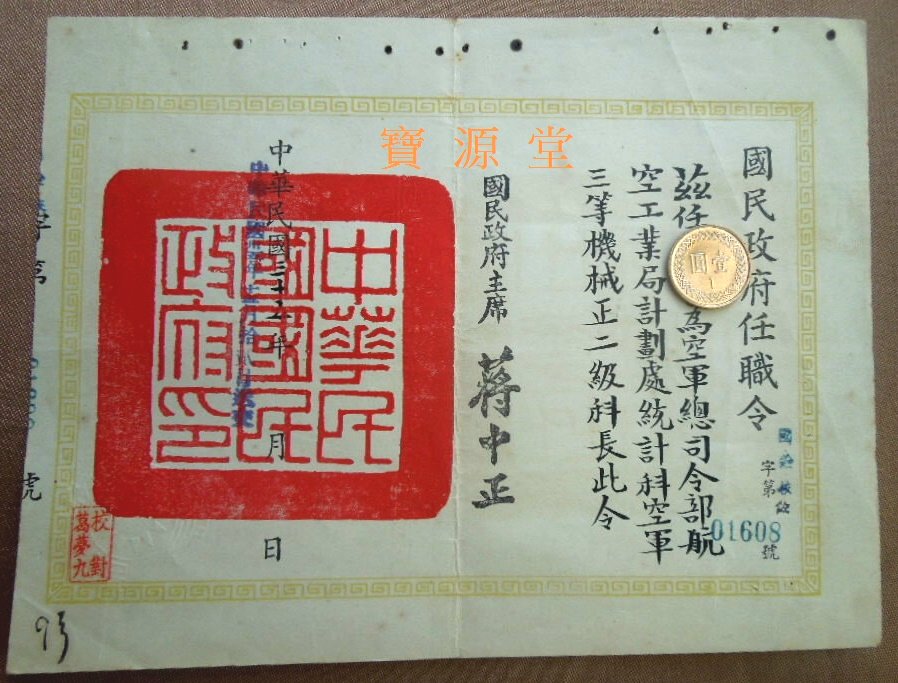 寶源堂
國民政府任職令
國
字第01608號
茲任 為空軍總司令部航
空工業局計劃處統計科空軍
三等機械正二級科長此令
國民政府主席 蔣中正
中華民國三十五年 月 日
中華民
國國民
政府印
壹圓
1
校對
葛夢九
字第
號
93